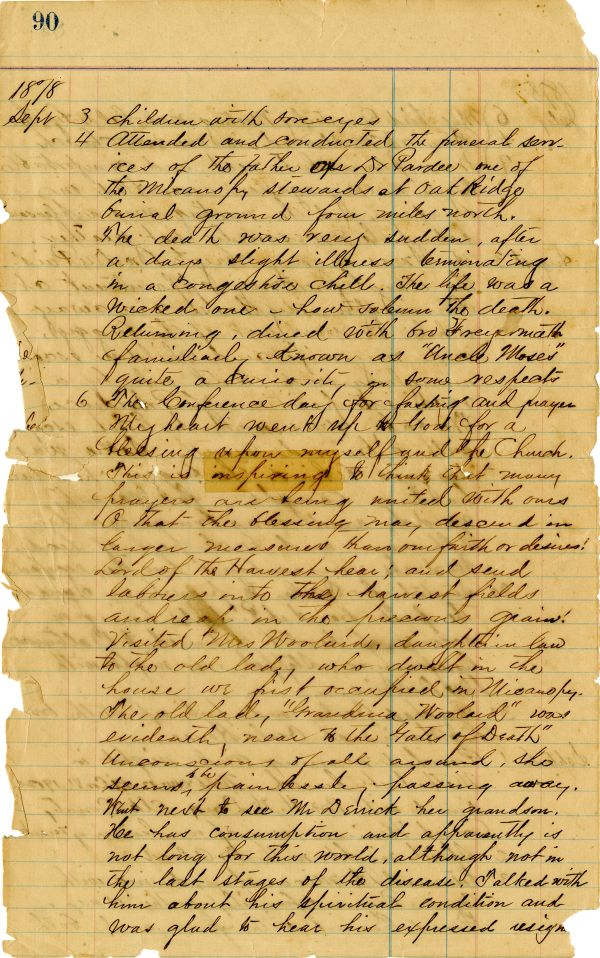 90
1878
Sept 3 children with sore eyes
4 Attended and conducted the funeral serv-
ices of the father of Dr Pardee one of
the Micanopy stewards at Oak Ridge
burial ground four miles north.
The death was very sudden, after
a days slight illness terminating
in a congestive chill. The life was a
wicked one – how solemn the death.
Returning, dined with bro Freyermuth
familiarly known as "Uncle Moses"
quite a curiosity in some respects
6 The Conference day for fasting and prayer
My heart went up to God for a
blessing upon myself and the Church.
This is inspiring to think that many
prayers are being united with ours
O that the blessing may descend in
larger measures than our faith or desires!
Lord of the Harvest hear; and send
laborers into the harvest fields
and reap in the precious grain!
Visited Mrs Woolard, daughter in law
to the old lady who dwelt in the
house we first occupied in Micanopy.
The old lady, "Grandma Woolard" was
evidently near to the Gates of Death"
Unconscious of all around, she
seems to be painlessly passing away.
Went next to see Mr Derrick her grandson.
He has consumption and apparently is
not long for this world, although not in
the last stages of the disease. Talked with
him about his spiritual condition and
was glad to hear his expressed resign